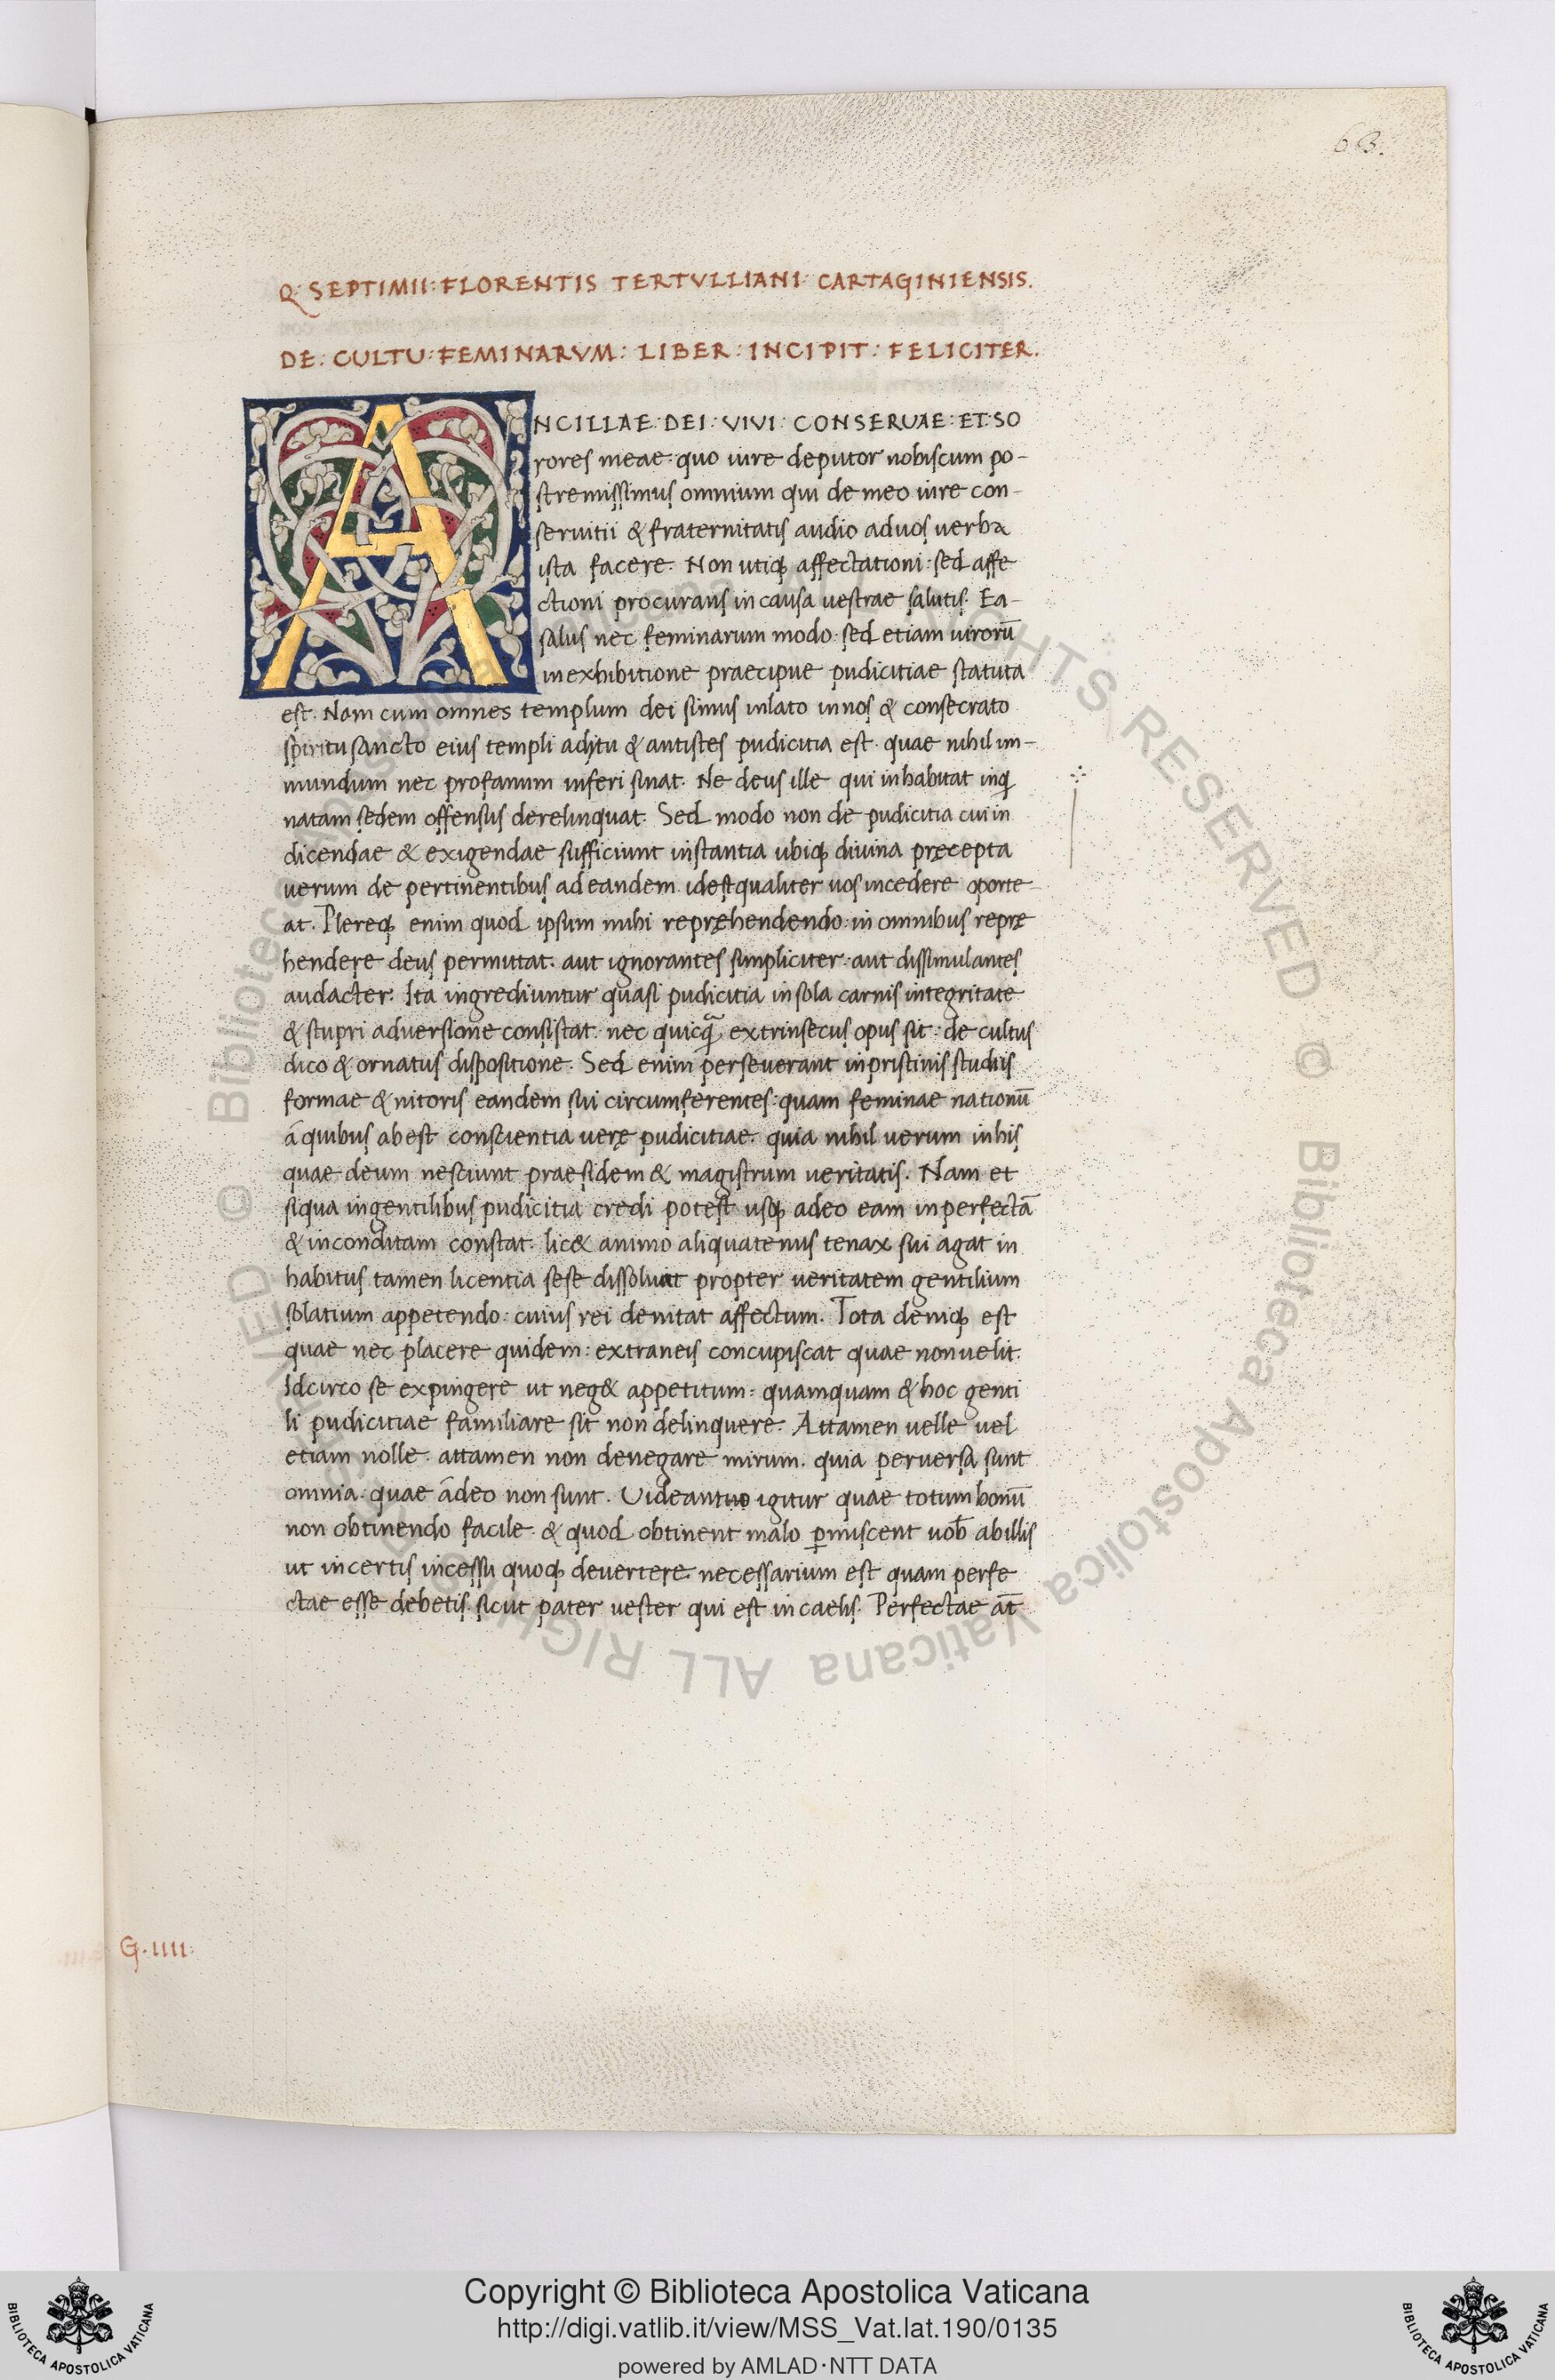 63.
Q. SEPTIMII: FLORENTIS TERTVLLIANI CARTAGINIENSIS.
DE: CULTU: FEMINARVM: LIBER: INCIPIT: FELICITER.
ANCILLAE: DEI: VIVI: CONSERUAE: ET: SO
rores meae: quo iure deputor nobiscum po-
stremissimus omnium qui de meo iure con-
seruitii & fraternitatis audio aduos uerba
ista facere. Non utiqꝫ affectationi: sed affe
ctioni procurans in causa uestrae salutis. Ea-
salus nec feminarum modo: sed etiam uirorū
in exhibitione praecipue pudicitiae statuta
est. Nam cum omnes templum dei simus inlato innos & consecrato
spiritu sancto eius templi aditu & antistes pudicitia est. quae nihil im-
mundum nec profanum inferi sinat. Ne deus ille qui inhabitat inq
natam sedem offensus derelinquat. Sed modo non de pudicitia cui in
dicendae & exigendae sufficiunt instantia ubiqꝫ diuina pręcepta
uerum de pertinentibus ad eandem. idest qualiter uos incedere oporte-
at. Plereqꝫ enim quod ipsum mihi repręhendendo: in omnibus reprę
hendere deus permittat. aut ignorantes simpliciter: aut dissimulantes
audacter. Ita ingrediuntur quasi pudicitia insola carnis integritate
& stupri aduersione consistat. nec quicq̃ extrinsecus opus sit: de cultus
dico & ornatus dispositione. Sed enim perseuerant inpristinis studiis
formae & nitoris eandem sui circumferentes: quam feminae nationū
a quibus abest conscientia uerę pudicitiae. quia nihil uerum inhis
quae deum nesciunt praesidem & magistrum ueritatis. Nam et
siqua ingentilibus pudicitia credi potest usqꝫ adeo eam inperfectā
& inconditam constat. lic& animo aliquatenus tenax sui agat in
habitus tamen licentia sese dissoluat propter ueritatem gentilium
solatium appetendo: cuius rei deuitat affectum. Tota deniqꝫ est
quae nec placere quidem: extraneis concupiscat quae non uelit.
Idcirco se expingere ut neg& appetitum: quamquam & hoc genti
li pudicitiae familiare sit non delinquere. Attamen uelle uel
etiam nolle. attamen non denegare mirum. quia peruersa sunt
omnia. quae adeo non sunt. Uideantuo igitur quae totum bonū
non obtinendo facile. & quod obtinent malo p̱miscent uob̄ abillis
ut incertis incessu quoqꝫ deuertere. necessarium est quam perfe
ctae esse debetis. sicut pater uester qui est in caelis. Perfectae at̄
G. IIII.
Copyright © Biblioteca Apostolica Vaticana
http://digi.vatlib.it/view/MSS_Vat.lat.190/0135
powered by AMLAD·NTT DATA
BIBLIOTECA APOSTOLICA VATICANA
BIBLIOTECA APOSTOLICA VATICANA
© Biblioteca Apostolica Vaticana ALL RIGHTS RESERVED © Biblioteca Apostolica Vaticana ALL RIGHTS RESERVED